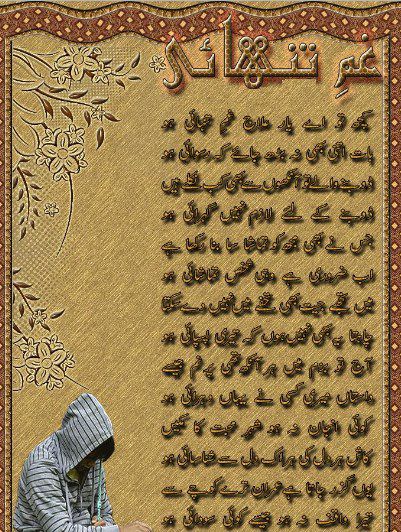 غمِ تنہائی
کچھ تو اے یار علاجِ غمِ تنہائی ہو
بات اتنی بھی نہ بڑھ جائے کہ رسوائی ہو
ڈوبنے والے تو آنکھوں سے بھی کب نکلے ہیں
ڈوبنے کے لئے لازم نہیں گہرائی ہو
جس نے بھی مجھ کو تماشا سا بنا رکھا ہے
اب ضروری ہے وہی شخص تماشائی ہو
میں تجھے جیت بھی تحفے میں نہیں دے سکتا
چاہتا یہ بھی نہیں ہوں کہ تیری پسپائی ہو
آج تو بزم میں ہر آنکھ تھی پرنم جیسے
داستاں میری کسی نے یہاں دہرائی ہو
کوئی انجان نہ ہو شہرِ محبت کا مکیں
کاش ہر دل کی ہر اک دل سے شناسائی ہو
یوں گزر جاتا ہے تیرے کوچے سے
تیرا واقف نہ ہو جیسے کوئی سودائی ہو